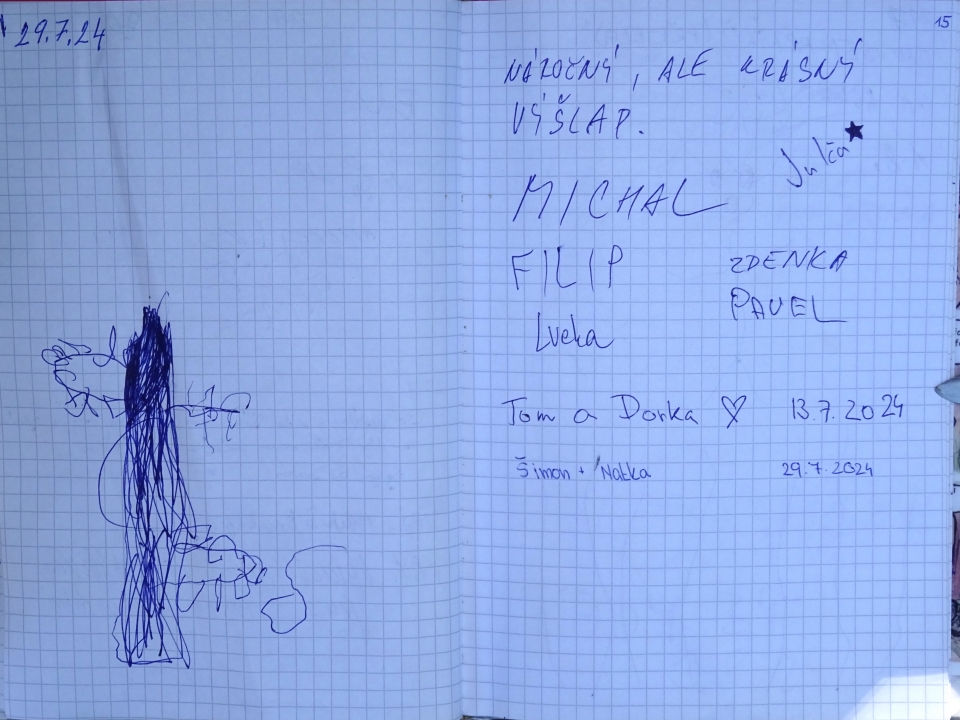 29.7.24
15
NÁROČNÝ, ALE KRÁSNÝ
VÝŠLAP.
Julča
MICHAL
FILIP
ZDENKA
PAVEL
Lucka
Tom a Dorka ♡ 13.7.2024
Šimon + Natka 29.7.2024